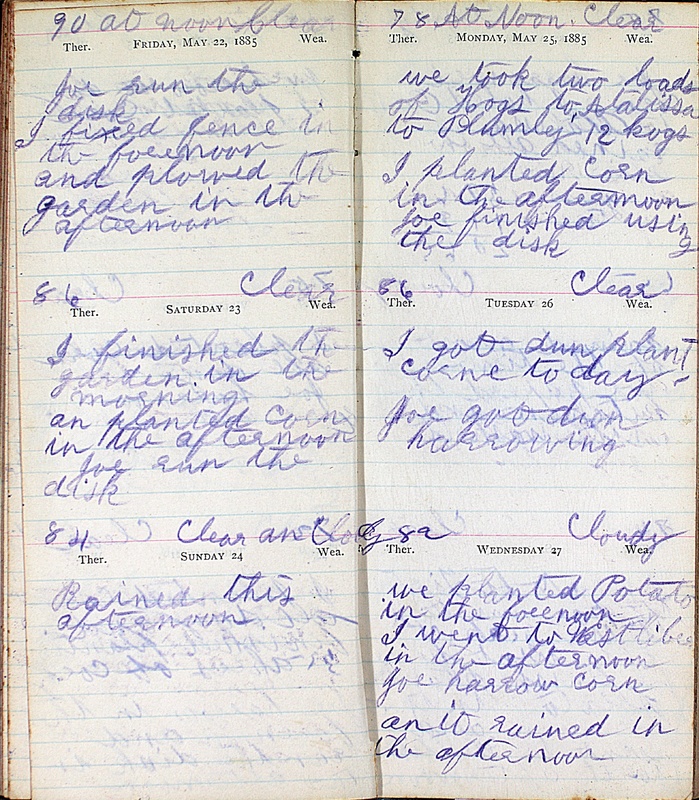 90 at noon Clear
Ther. FRIDAY, MAY 22, 1885 Wea.
Joe run the
disk
I fixed fence in
the foeenoon
and plowed the
garden in the
afternoon
86 Clear
Ther. SATURDAY 23 Wea.
I finished the
garden in the
morning
an planted corn
in the afternoon
Joe run the
disk
84 Clear an Cloudy
Ther. SUNDAY 24 Wea.
Rained this
afternoon
78 At Noon. Clear
Ther. MONDAY, MAY 25, 1885 Wea.
we took two loads
of Hoogs to Atalissa
to Plumley 12 hogs
I planted corn
in the afternoon
Joe finished using
the disk
86 Clear
Ther. TUESDAY 26 Wea.
I got dun plant
corne to day
Joe got dun
harrowing
82 Cloudy
Ther. WEDNESDAY 27 Wea.
we planted Potato
in the foeenoon
I went to
in the afternoon
Joe harrow corn
an it rained in
the afternoon